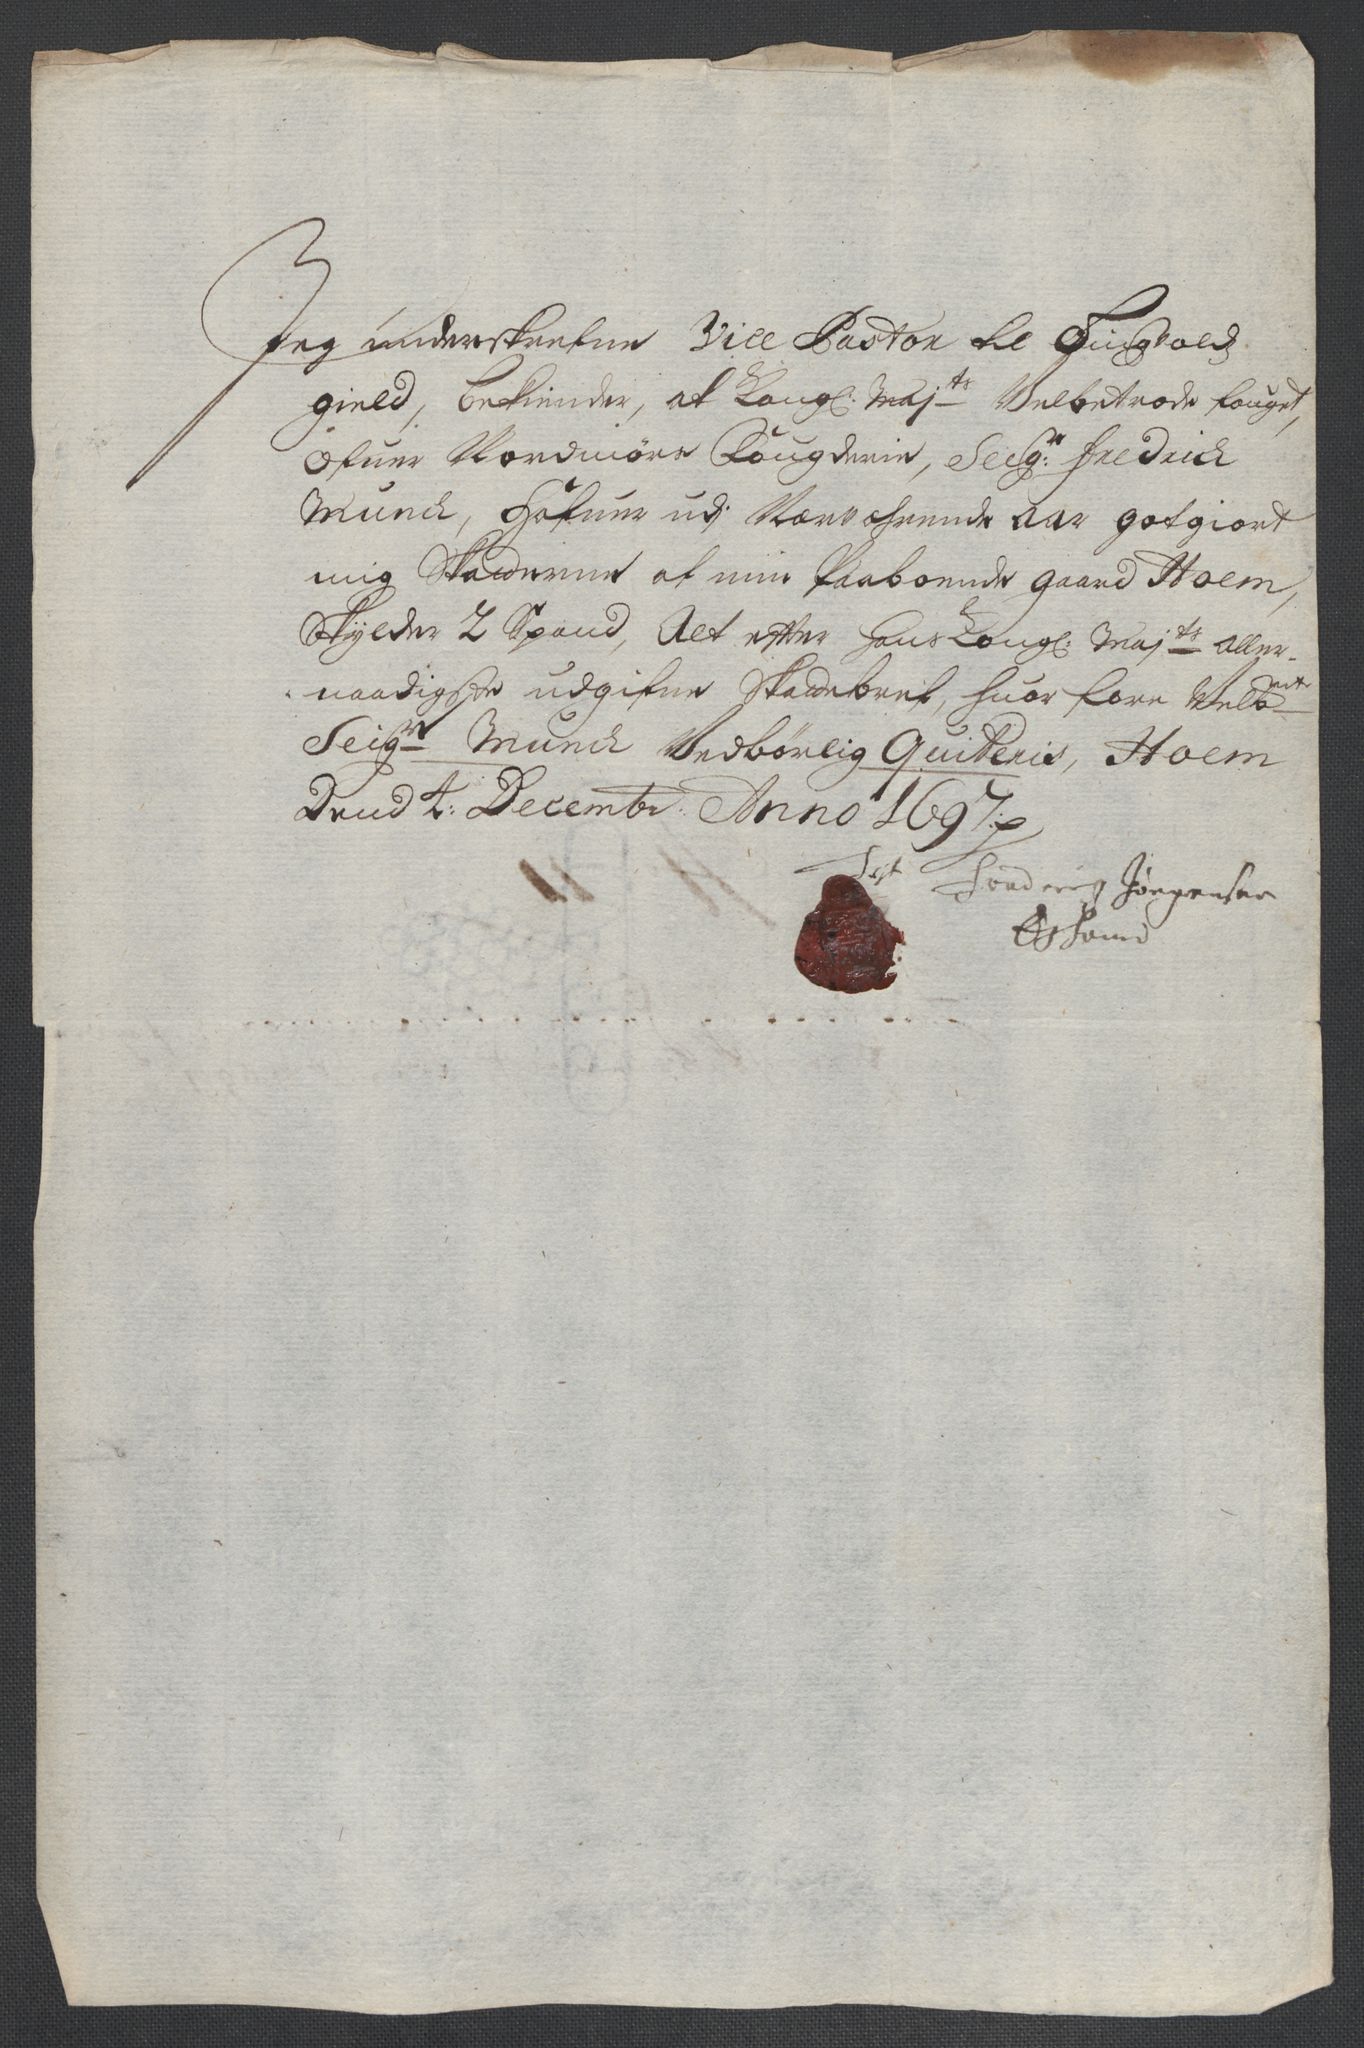 Jeg underskrefne Vice Pastor til Tingvold
gield, bekiender, at Kongl: Maj:ts Velbetrode fouget,
ofuer Nordmørs Fougderie, Seigr: Fredrich
Munch, hafuer udj Nærverende Aar gotgiort
mig Skatterne af min Paaboende gaard Hoem,
Skylder 2 Spand, Alt efter Hans Kongl: Maj:ts Aller-
naadigste udgifne Skattebref, huor fore Velb:mte
Seigr: Munch Vedbørlig Quiteris, Hoem
Dend 4: Decembr: Anno 1697 p
Jørgensen